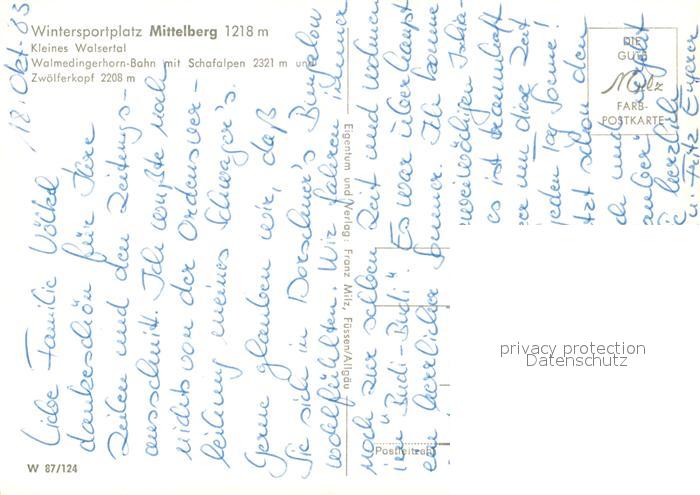 Wintersportplatz Mittelberg 1218 m
Kleines Walsertal
Walmedingerhorn-Bahn mit Schafalpen 2321 m und
Zwölferkopf 2208 m
18. Okt. 83
Liebe Familie Völkel
dankeschön für Ihre
Zeilen und den Zeitungs-
ausschnitt. Ich wußte noch
nichts von der Ordensver-
leihung meines Schwager's.
Gerne glauben wir, daß
Sie sich in Dorschner's Bungalow
wohlfühlten. Wir fahren immer
noch zur selben Zeit und wohnen
im "Budi-Budi". Es war überhaupt
ein herrlicher Sommer. Ich
es ist traumhaft
um diese Zeit
jeden Tag Sonne!
tzt schon den
ch und
herzlich
Eigentum und Verlag: Franz Milz, Füssen/Allgäu
DIE
GUTE
Milz
FARB-
POSTKARTE
privacy protection
Datenschutz
Postleitzahl
W 87/124